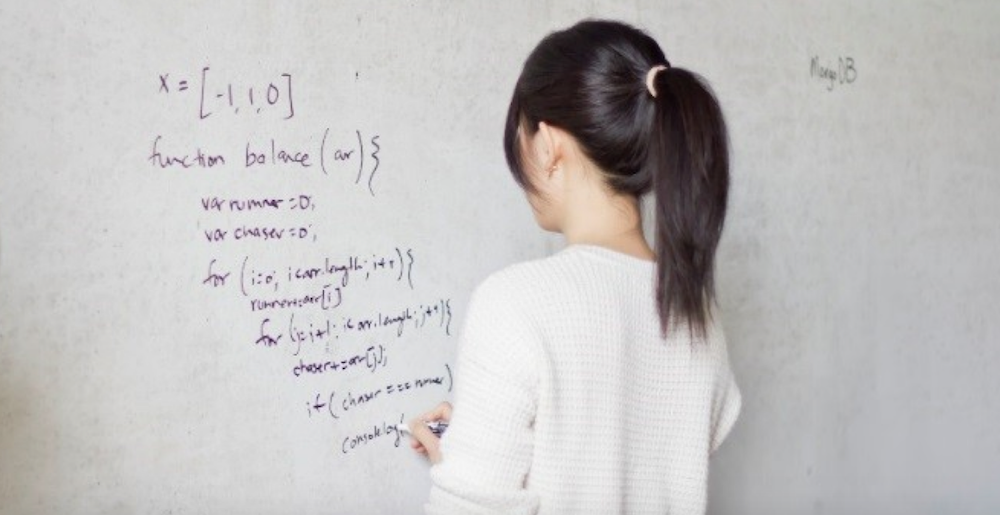 x = [-1, 1, 0]
function balance (ar) {
var runner = 0;
var chaser = 0;
for (i=0; i<arr.length; i++) {
runner+=arr[i]
for (j=i+1; i<arr.length; j++) {
chaser+=arr[j];
if (chaser === runner)
console.log
MongoDB